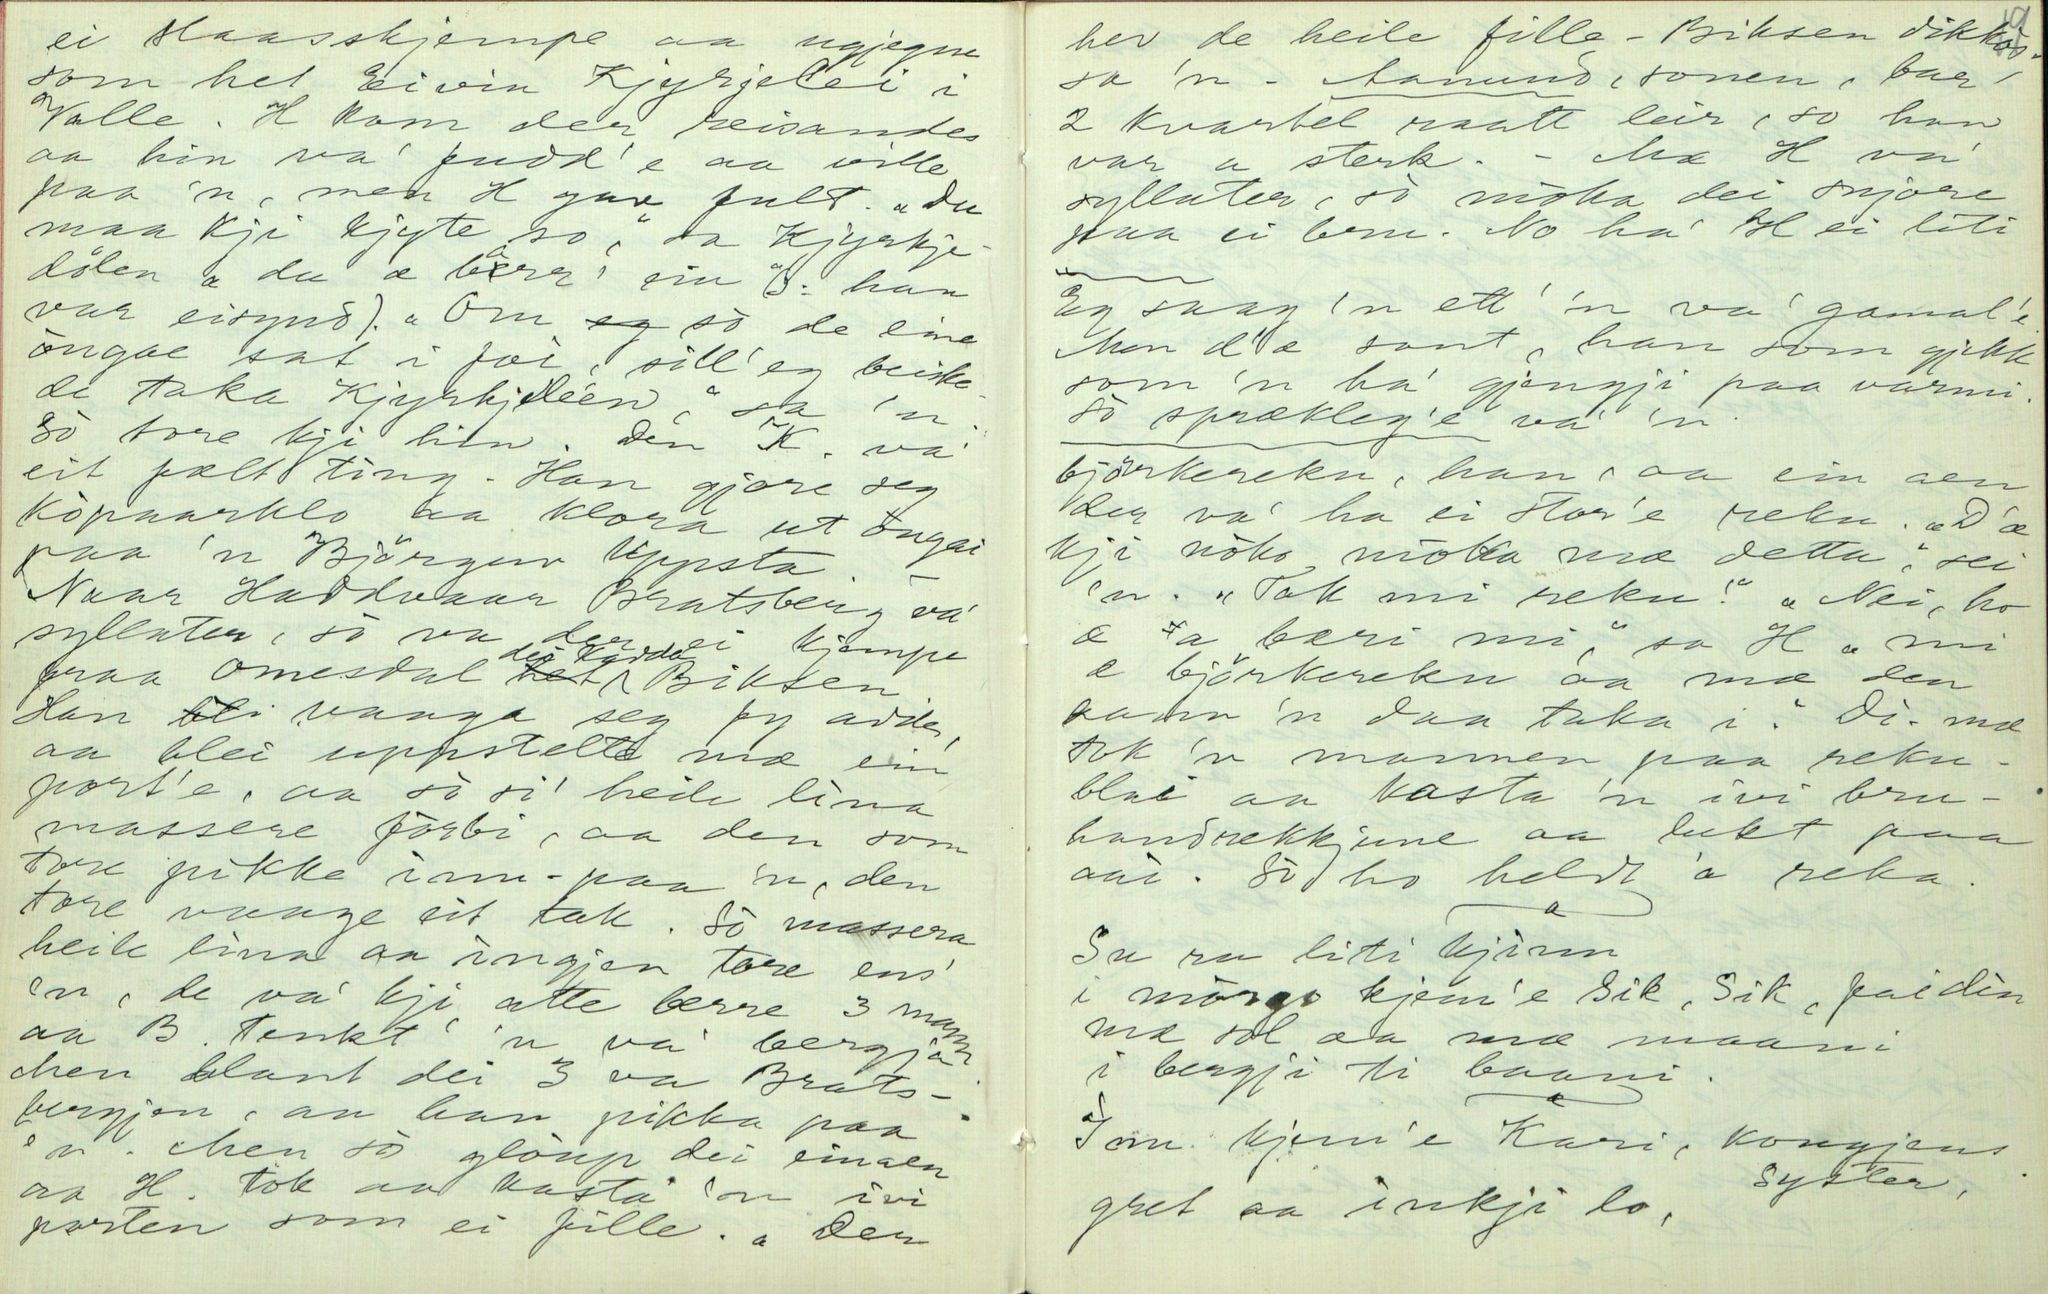 ei Slaasskjempe aa ugjegne
som het Eivin Kjyrjelei i
Valle. H kom der reisandes
aa hin va' fudd'e aa ville
paa 'n, men H gav fult. "Du
maa kji kjyte so," sa Kjyrkje-
dölen "du æ bærr' ein" (ɔ: han
var eisynd). "Om so de eine
òngae sat i foi, sill' eg beiske
de taka Kjyrkjeleien," sa 'n.
So tore kji hin. Den K. va'
eit fælt ting. Han gjore seg
kòpaarklo aa klora ut òngai
paa 'n Björguv Uppsta
Naar Haddvaar Bratsberg va'
syllater, sò va der ei kjempe
paa Omesdal dei kadda Biksen
Han vaaga seg fy adde,
aa blei uppstellte mæ ein
port'e, aa sò si' heile lina
massere fòrbi, aa den som
tore pikke inn-paa 'n, den
tore vaage eit tak. Sò massera
heile lina aa ingjen tore ens'
'n, de va' kji atte berre 3 mann
aa B. tenkt' 'n va' bergja.
Men blant dei 3 va Brats-
bergjen, aa han pikka paa
'n. Men sò glòup dei einaen
aa H. tok aa kasta 'n ivi
porten som ei fille. "Der
19
her de heile fille-Biksen dikkòs",
sa 'n. - Aamund, sonen, bar
2 kvartel raatt leir, so han
var a sterk. - Mæ H va'
syllater, sò mòka dei snjore
paa ei bru. No ha' H ei liti
Eg saag 'n ett' 'n va' gamal'e.
Men d'æ sant, han som gjekk
som 'n ha' gjengji paa varmi.
Sò sprækleg'e va' 'n.
björkereku, han, aa ein aen
der va' ha ei stor'e reku. "D'æ
kji nòko mòka mæ detta", sei
'n. "Tak mi reku!" "Nei, ho
æ 'a bæri mi," sa H "mi
æ björkereku aa mæ den
kann 'n daa taka i." Di-mæ
tok 'n mannen paa reku-
blai aa kasta 'n ivi bru-
handrekkjune aa lukt paa
aai. Sò ho heldt 'a reka.
Su ru liti kjinn
i mòrgo kjem'e Sik, Sik, fai din
mæ sol aa mæ maani
i bergji ti baani.
I'm kjem'e Kari, kongjens
syster,
gret aa inkji lo,